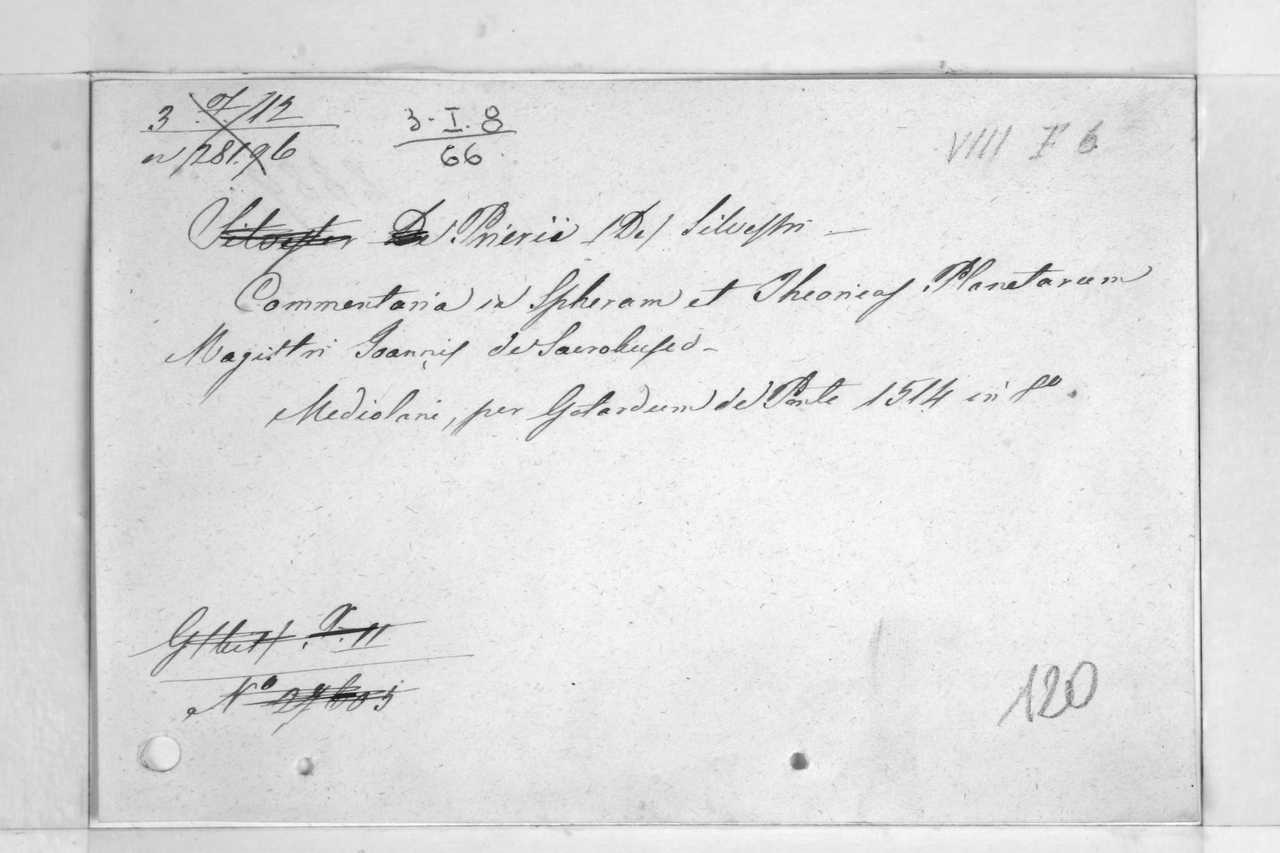 3-I.8
66
VIII F 6
Silvester De Prierii (De) Silvestri —
Commentaria in Spheram et Theoricas Planetarum
Magistri Joannis de Sacrobusco —
Mediolani, per Gotardum de Ponte 1514 in 8º.
Nº
120